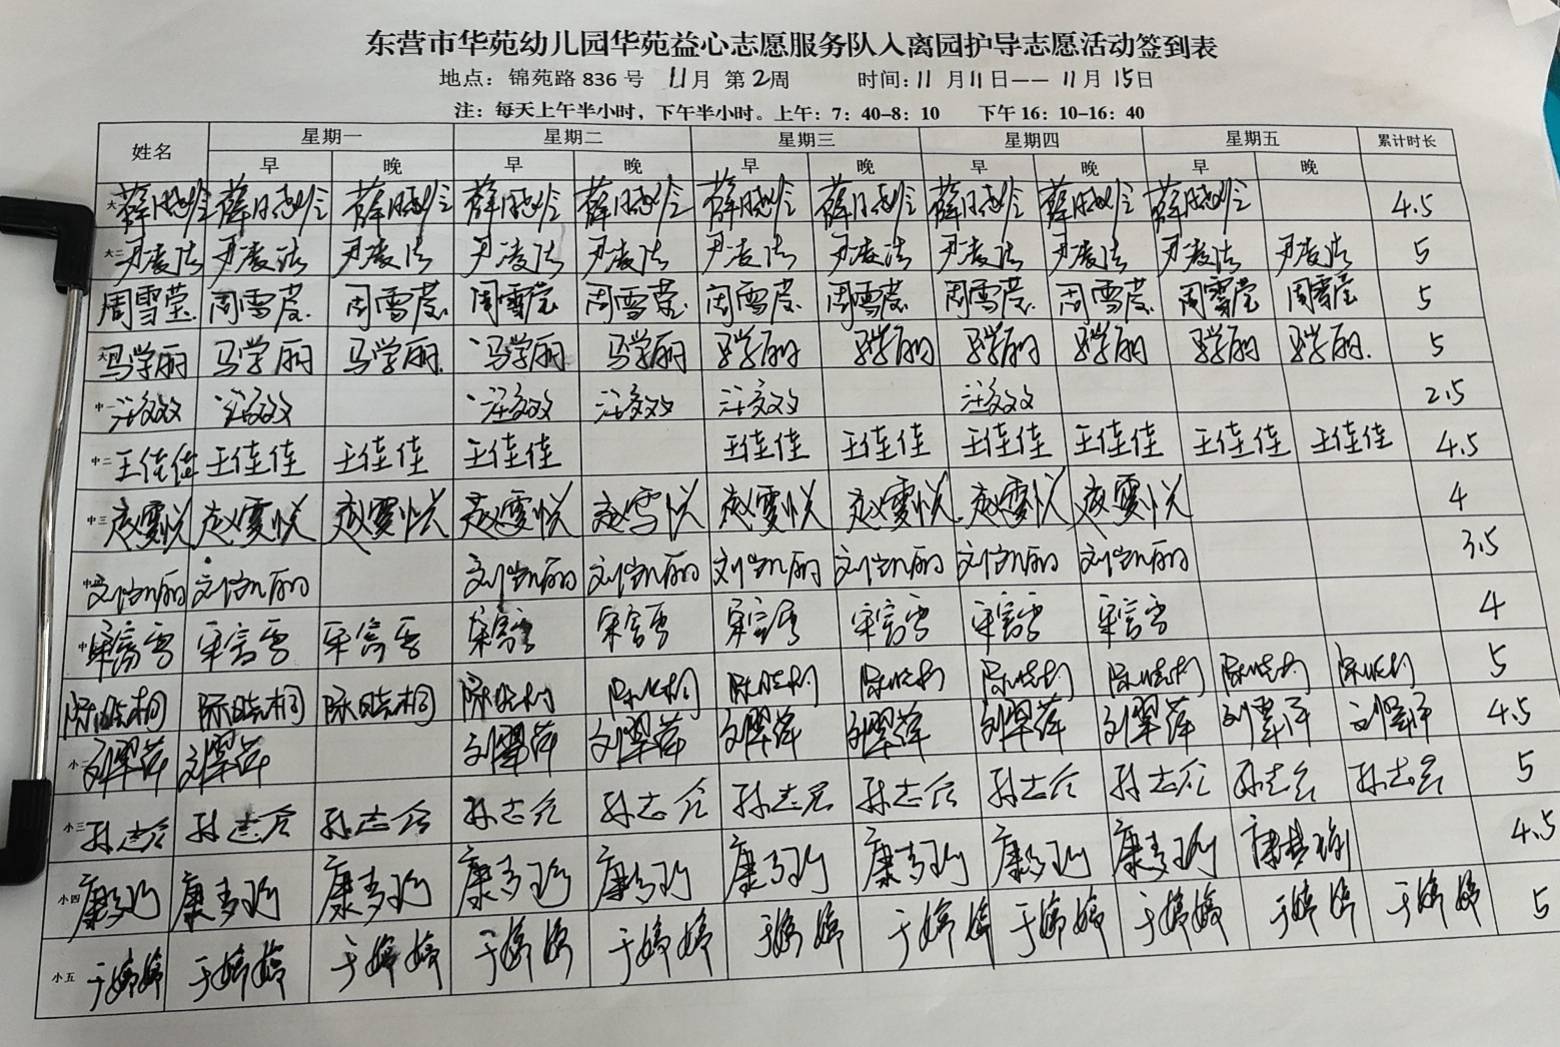 东营市华苑幼儿园华苑益心志愿服务队入离园护导志愿活动签到表
地点：锦苑路 836 号 11月 第2周 时间：11月11日——11月15日
注：每天上午半小时，下午半小时。上午：7：40-8：10 下午 16：10-16：40
姓名 星期一 星期二 星期三 星期四 星期五 累计时长
早 晚 早 晚 早 晚 早 晚 早 晚
大一 4.5
大二 尹凌洁 尹凌洁 尹凌洁 尹凌洁 尹凌洁 尹凌洁 尹凌洁 尹凌洁 尹凌洁 尹凌洁 尹凌洁 5
周雪莹 周雪莹 周雪莹 周雪莹 周雪莹 周雪莹 周雪莹 周雪莹 周雪莹 周雪莹 周雪莹 5
大 马学丽 马学丽 马学丽 马学丽 马学丽 马学丽 马学丽 马学丽 马学丽 马学丽 马学丽 5
中一 汪效效 汪效效 汪效效 汪效效 汪效效 汪效效 2.5
中二 王佳佳 王佳佳 王佳佳 王佳佳 王佳佳 王佳佳 王佳佳 王佳佳 王佳佳 王佳佳 4.5
中三 赵雯悦 赵雯悦 赵雯悦 赵雯悦 赵雪悦 赵雯悦 赵雯悦 赵雯悦 赵雯悦 4
中四 刘凯丽 刘凯丽 刘凯丽 刘凯丽 刘凯丽 刘凯丽 刘凯丽 刘凯丽 3.5
中 宋富雪 宋富雪 宋富雪 宋富雪 宋富雪 宋富雪 宋富雪 宋富雪 宋富雪 4
陈晓桐 陈晓桐 陈晓桐 陈晓桐 陈晓桐 陈晓桐 陈晓桐 陈晓桐 陈晓桐 陈晓桐 陈晓桐 5
小二 刘翠萍 刘翠萍 刘翠萍 刘翠萍 刘翠萍 刘翠萍 刘翠萍 刘翠萍 刘翠萍 刘翠萍 4.5
小三 孙志会 孙志会 孙志会 孙志会 孙志会 孙志会 孙志会 孙志会 孙志会 孙志会 孙志会 5
小四 康 康 康 康 康 康 康 康 康 康 4.5
小五 于婷婷 于婷婷 于婷婷 于婷婷 于婷婷 于婷婷 于婷婷 于婷婷 于婷婷 于婷婷 于婷婷 5